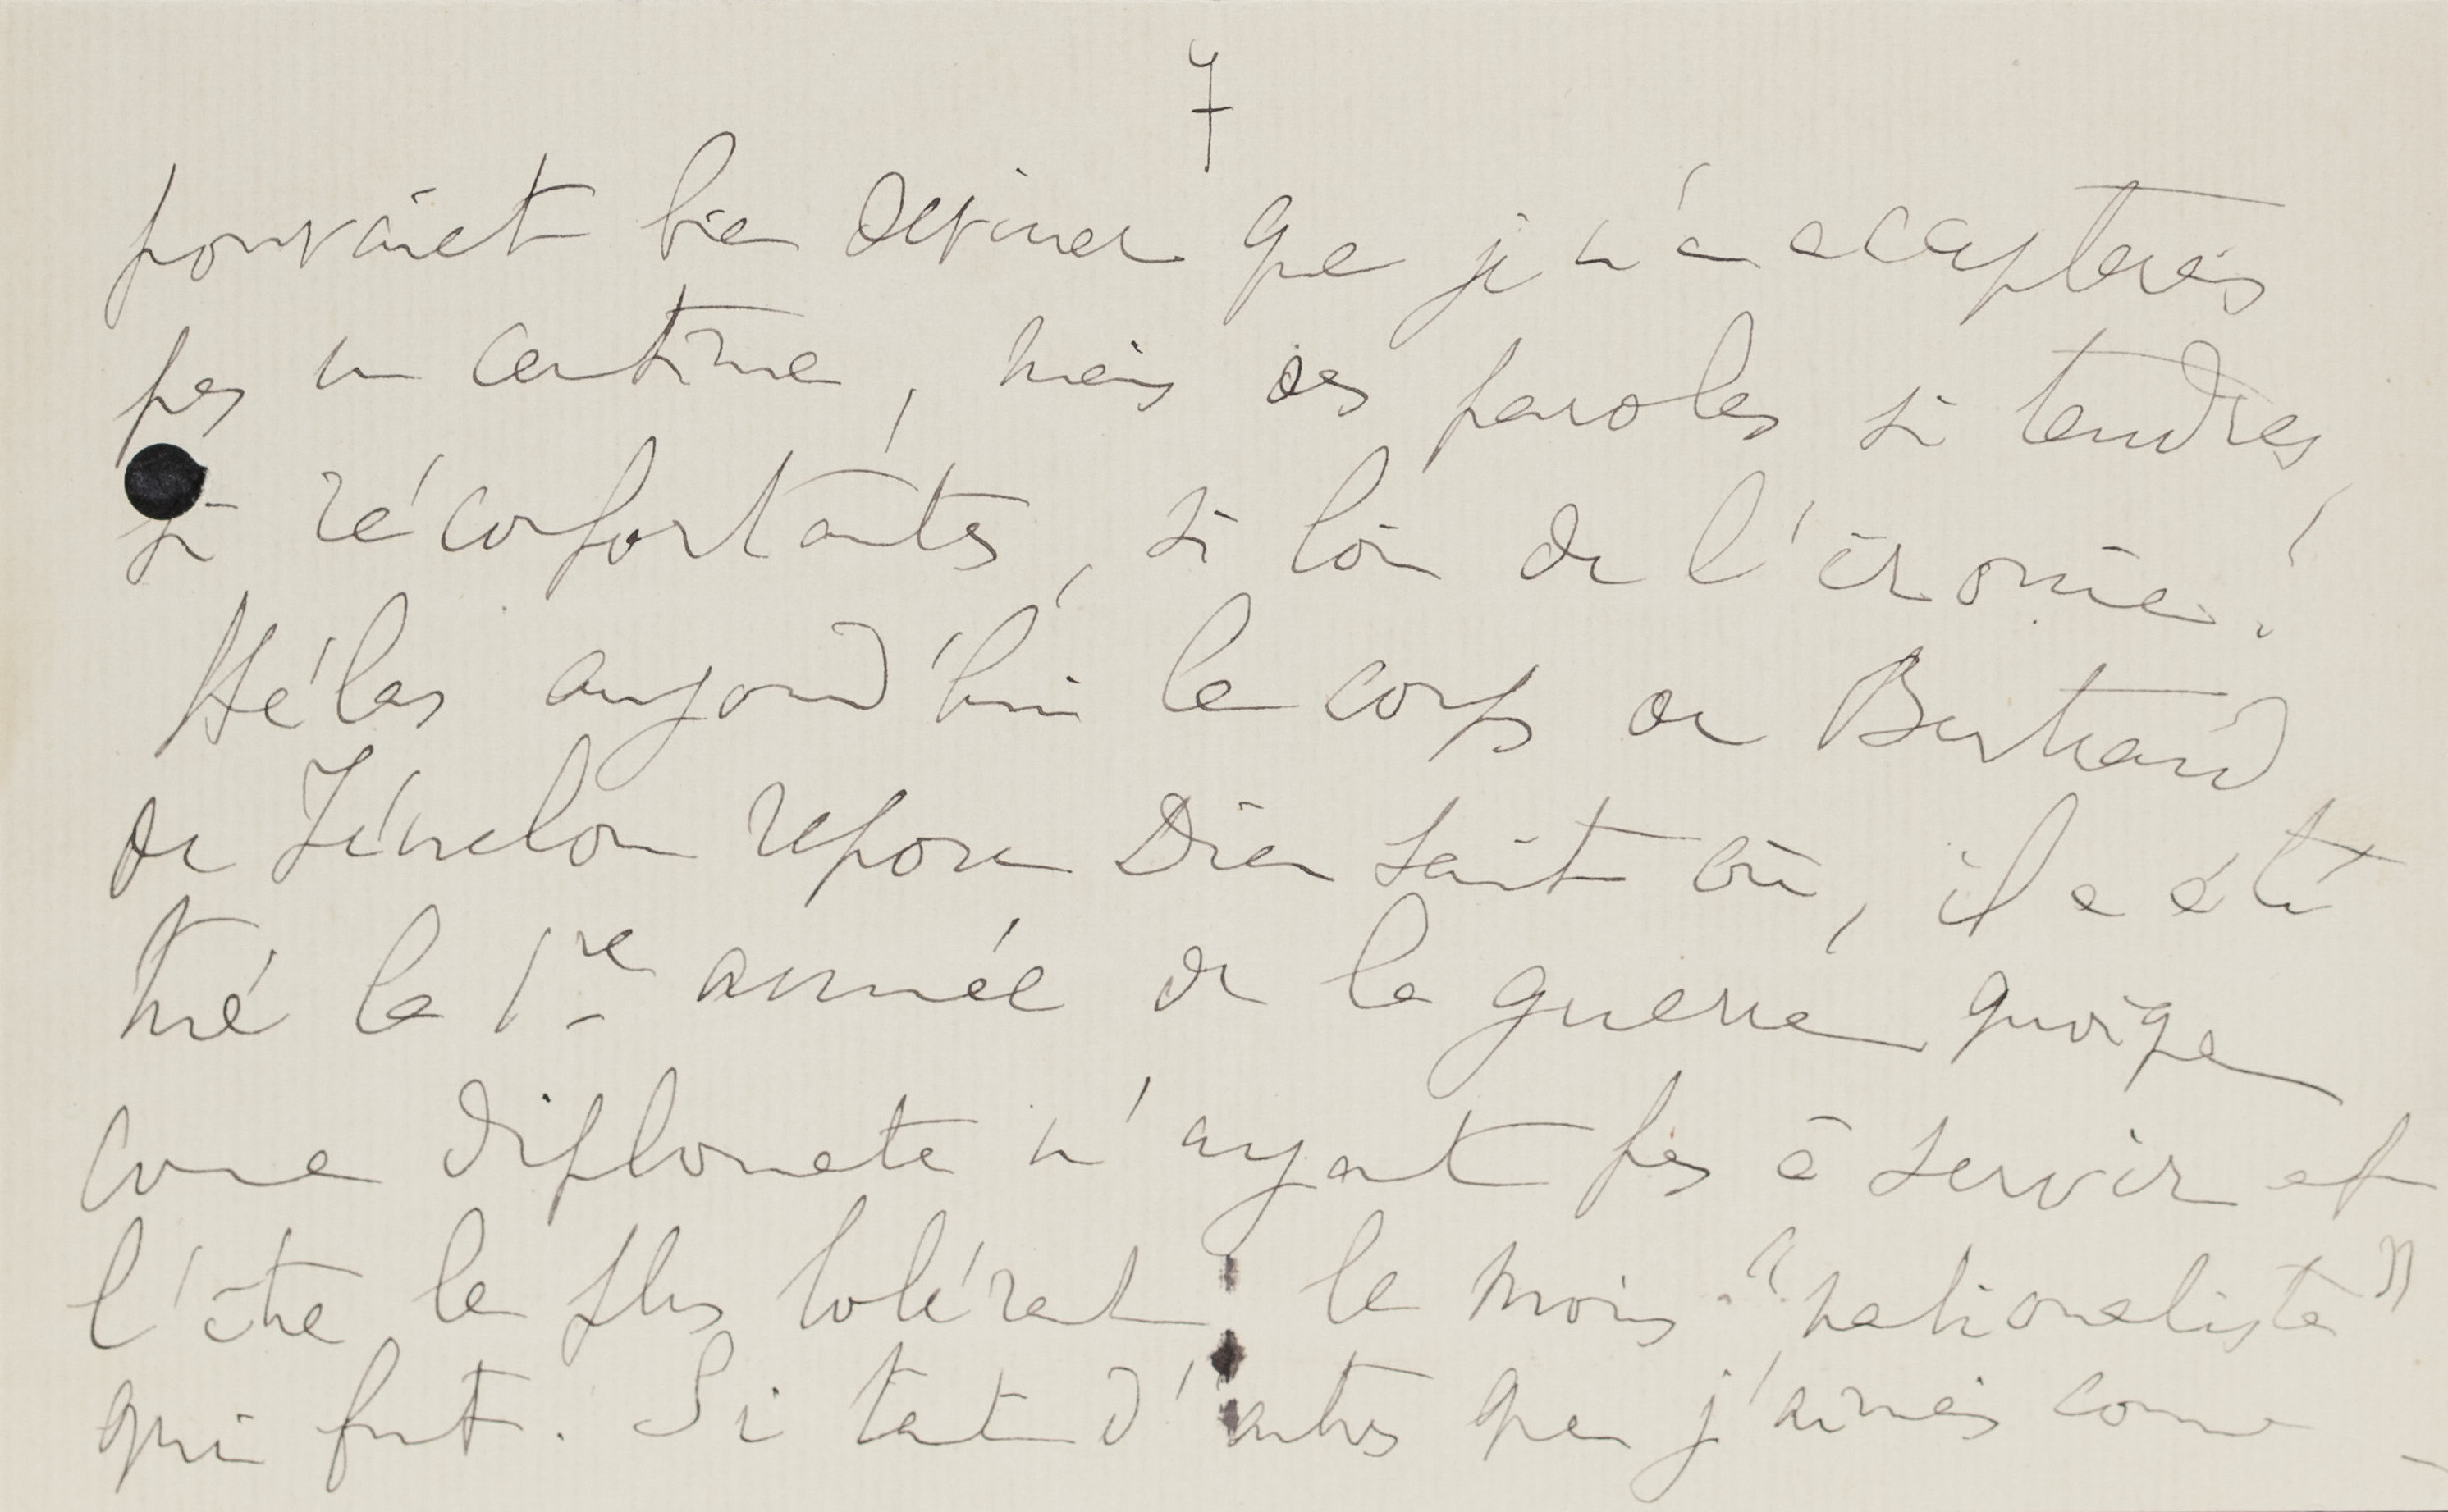 7
pouvaient bien deviner que je n'en accepterais
pas un centime, mais des paroles si tendres,
si réconfortantes, si loin de l'ironie !
Hélas aujourd'hui le corps de Bertrand
de Fénelon repose Dieu sait où, il a été
tué la 1re année de la guerre quoique
comme diplomate n'ayant pas à servir et
l'être le plus tolérant le moins "nationaliste"
qui fut. Si tant d'autres que j'aimais comme